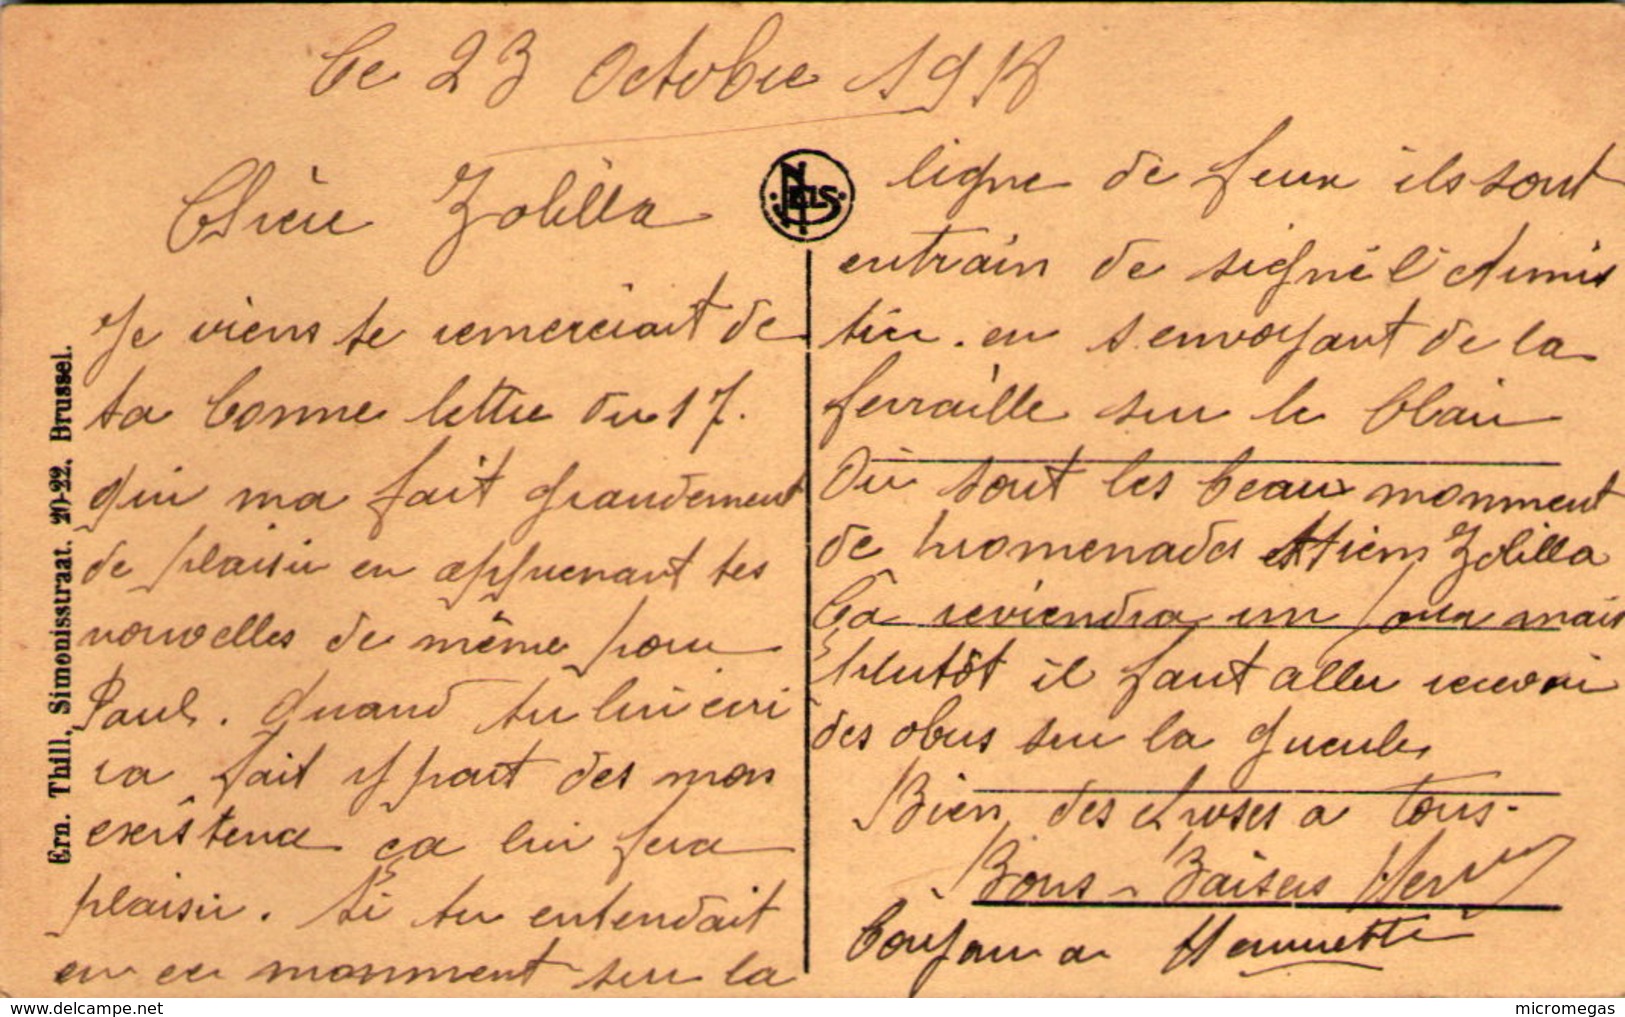 Le 23 Octobre 1918
Chère Zolilla
Je viens te remerciait de
ta bonne lettre du 17.
qui ma fait grandement
de plaisir en apprenant tes
nouvelles de même pour
Paul. Quand tu lui écri
ra fait y part des mon
existence ça lui fera
plaisir. Si tu entendait
en ce monment sur la
ligne de feux ils sont
entrain de signé l'Armis
tice. en s'envoyant de la
ferraille sur le blair
Où sont les beaux monment
de promenades et tiens Zolilla
Ça reviendra un jour mais
plutôt il faut aller recevoir
des obus sur la gueule
Bien des choses a tous-
Bons - Baisers Henry
Bonjour a Hennriette
NELS
Ern. Thill, Simonisstraat. 20-22, Brussel.
delcampe.net
micromegas